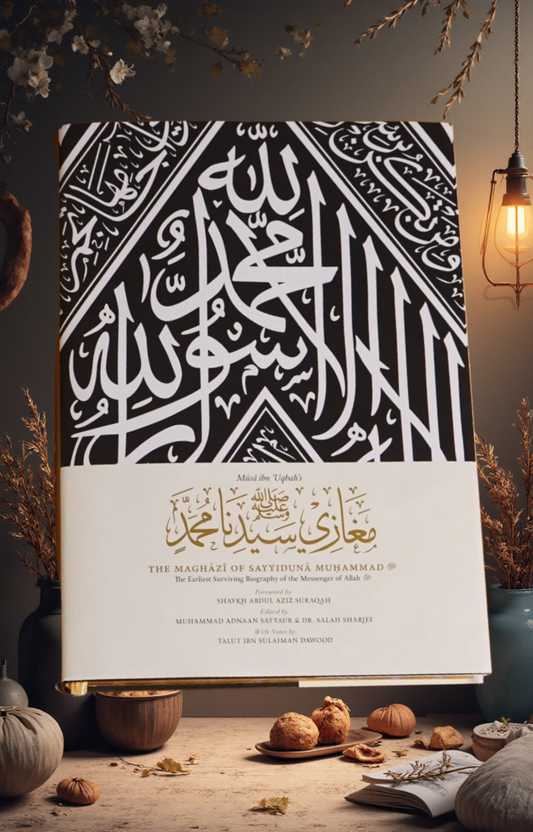 لا إله إلا الله محمد رسول الله
Mūsā ibn ʿUqbah's
مَغَازِي سَيِّدِنَا مُحَمَّدٍ ﷺ
THE MAGHĀZĪ OF SAYYIDUNĀ MUḤAMMAD ﷺ
The Earliest Surviving Biography of the Messenger of Allah ﷺ
Foreword by
SHAYKH ABDUL AZIZ SURAQAH
Edited by
MUHAMMAD ADNAAN SATTAUR & DR. SALAH SHARIEF
With Notes by
TALUT IBN SULAIMAN DAWOOD